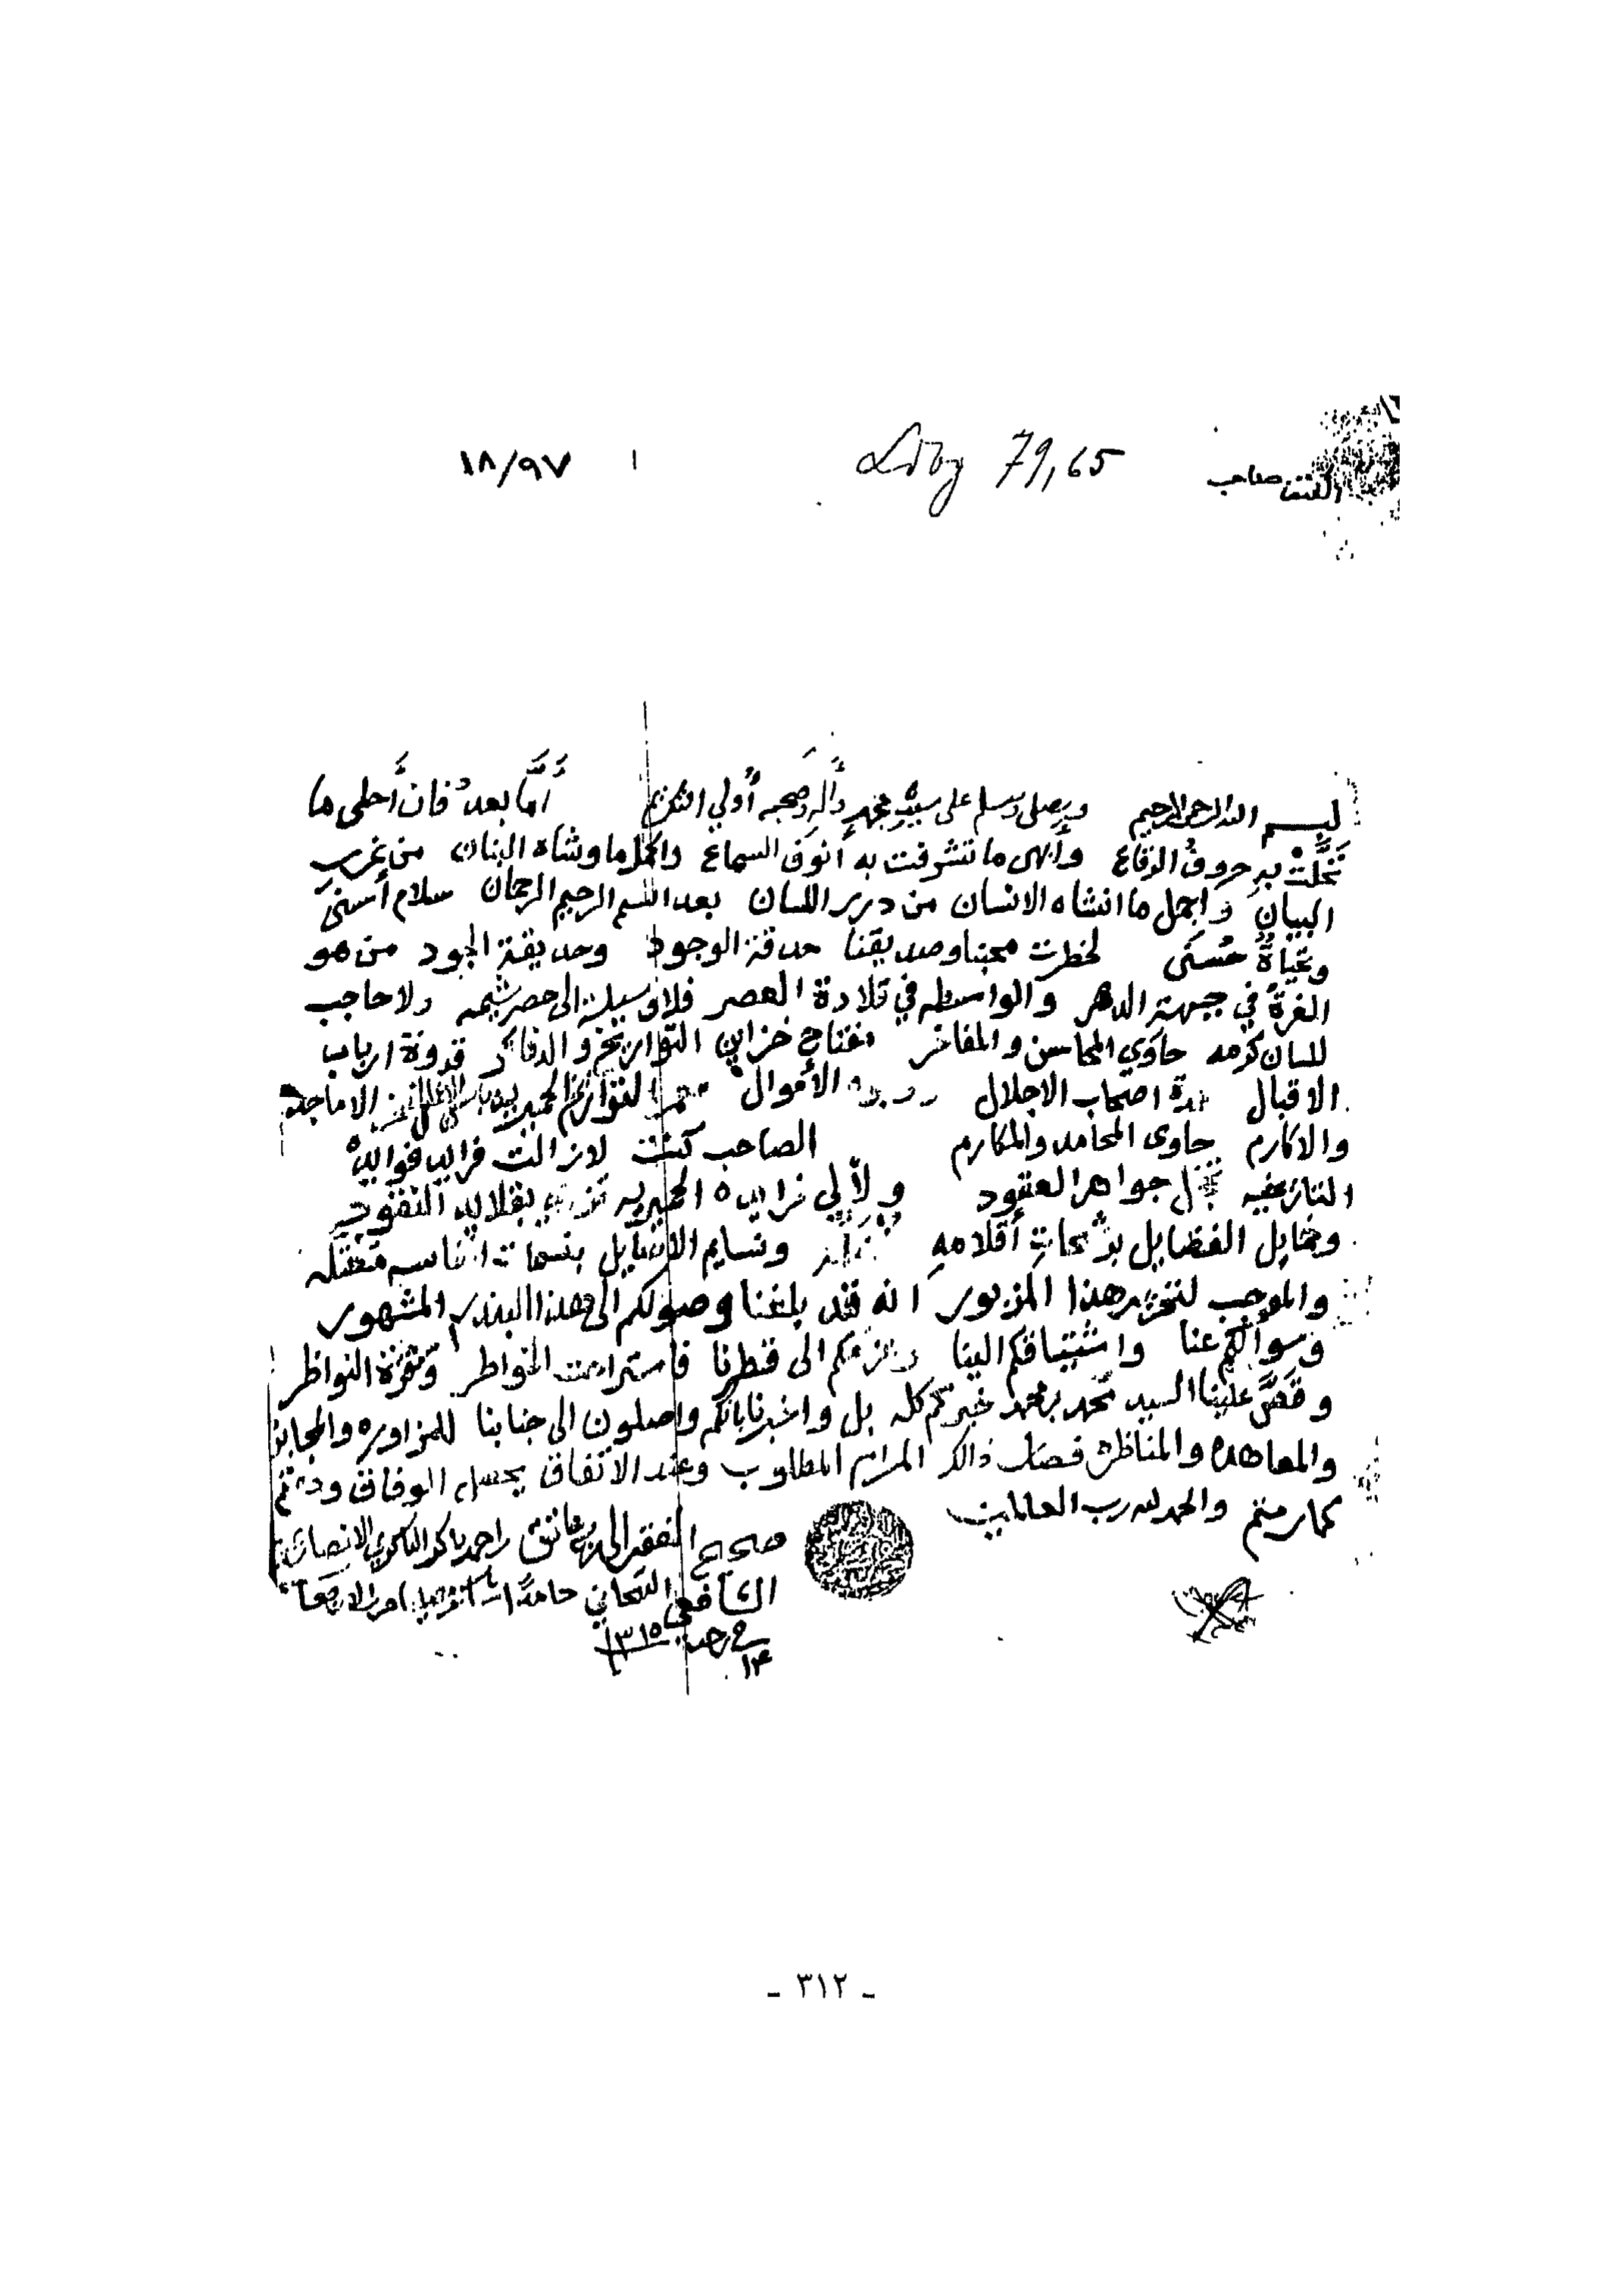 الكنت صاحب
79,65 ١ ١٨/٩٧
بسم الله الرحمن الرحيم ويصلي ويسلم على سيده محمد وآله وصحبه أولي التكريم أما بعد فان أحلى ما
تحلت به حروف الرقاع وأبهى ما تشرفت به أنوف السماع وأكمل ما وشاه البنان من غرب
البيان وأجمل ما انشاه الانسان من درر اللسان بعد اسم الرحيم الرحمان سلام أسنى
وتحياة حسنى لحظرت محبنا وصديقنا حدقة الوجود وحديقة الجود من هو
الغرة في جبهة الدهر والواسطه في قلادة العصر فلا وسيلة الى حصر شيمه ولا حاجب
للسان كرمه حاوي المحاسن والمفاخر مفتاح خزاين التواريخ والدفاتر قدوة ارباب
الاقبال اصحاب الاجلال الأموال التواريخ الحميريه الاماجد
والاكارم حاوى المحامد والمكارم الصاحب كنت لازالت فرايد فوايده
التاريخيه جواهر العقود ولألي فرايده الحميريه بقلايد
الفضايل برشحات أقلامه ونسايم بنسمات
والموجب لتحرير هذا المزبور انه قد بلغنا وصولكم الى هذا البندر المشهور
وسوالكم عنا واشتياقكم الينا وعزمكم الى قطرنا فاستراحت الخواطر وتقرة النواظر
وقص علينا السيد محمد خبركم كله بل واخبرنا بانكم واصلون الى جنابنا للمزاوره
والمعاهده والمناظره فصار ذالك المرام المطلوب وعند الاتفاق يحصل الوفاق ودمتم
كما رمتم والحمد لله رب العالمين
صحيح الفقير الى الانصاري
الشافعي حامدا
١٤ في رجب ١٣١٥
ـ ٣١٢ ـ